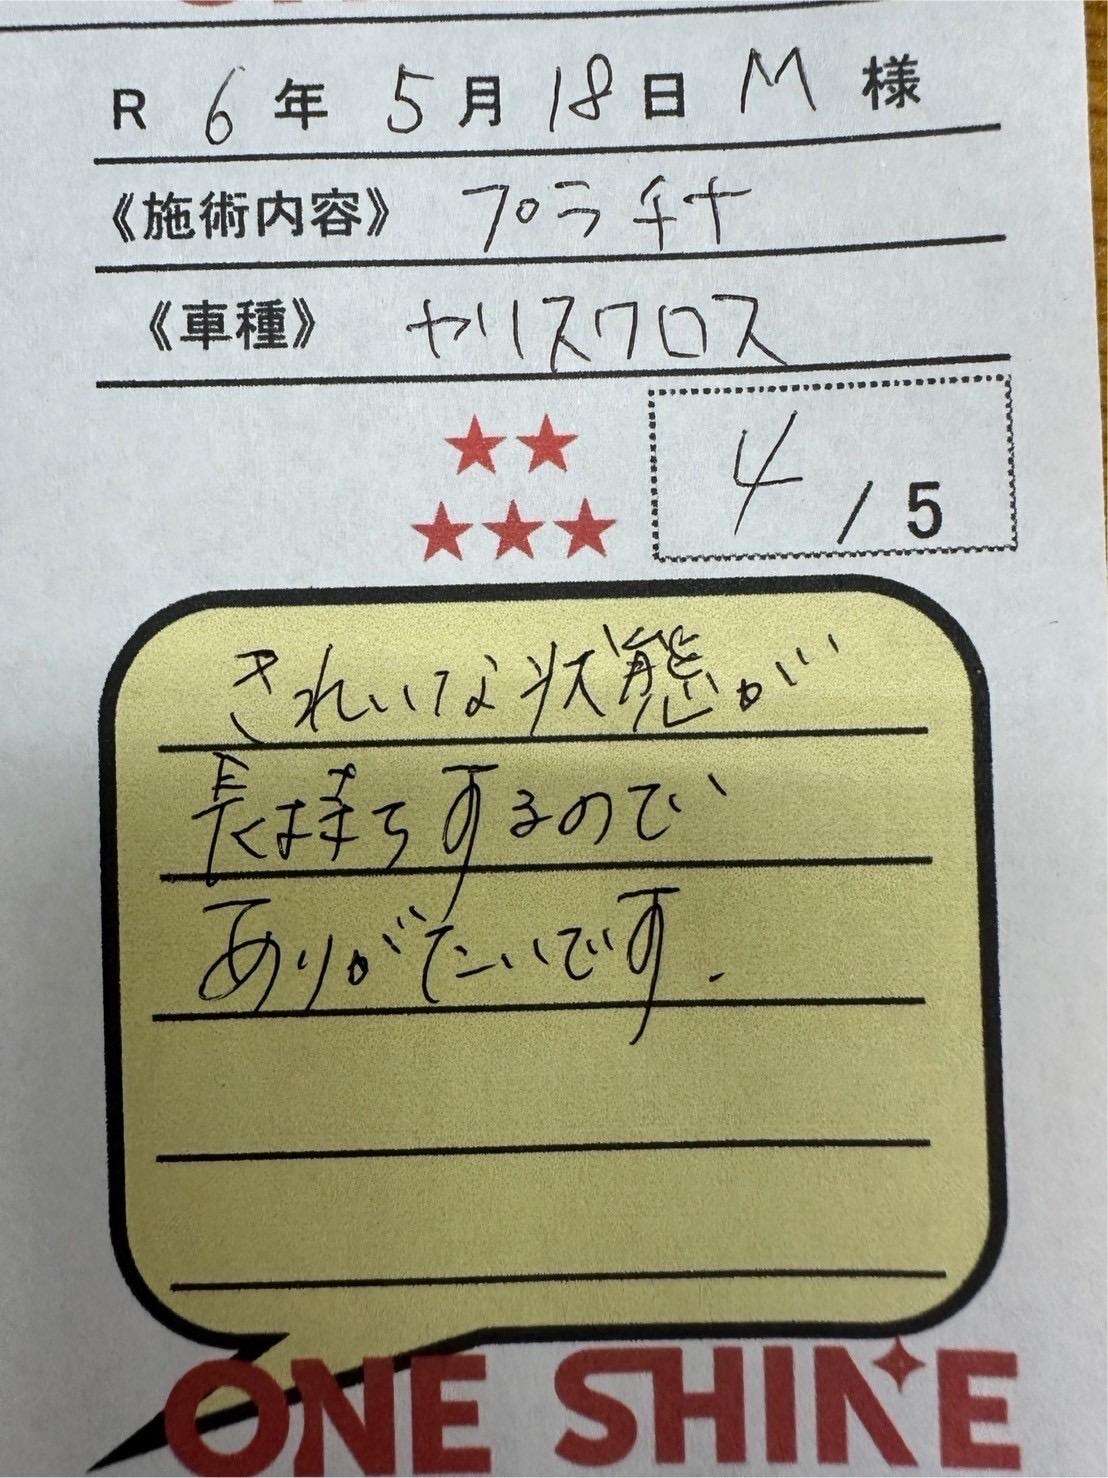 R 6年 5月 18日 M 様
《施術内容》 プラチナ
《車種》 ヤリスクロス
★★
★★★
4 / 5
きれいな状態が
長持ちするので
ありがたいです.
ONE SHINE